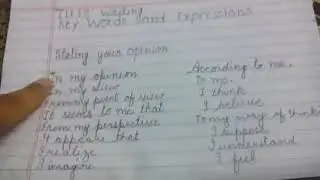 IELTS writing
Key Words and Expressions
Stating your opinion
In my opinion
In my view
From my point of view
It seems to me that
From my perspective
It appears that
I realize
I imagine
According to me
To me
I think
I believe
To my way of thinking
I suppose
I understand
I feel